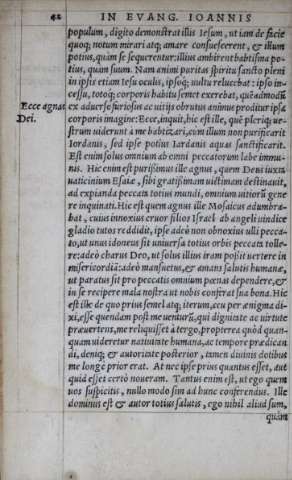 62 IN EVANG. IOANNIS
populum, digito demonstrat illis Iesum, ut iam de facie
quoq; notum mirari atq; amare consuescerent, & illum
potius, quàm se sequerentur: illius ambirent baptisma po-
tius, quàm suum. Nam animi puritas spiritu sancto pleni
in ipsis etiam Iesu oculis, ipsoq; uultu relucebat: ipso in-
cessu, totoq; corporis habitu semet exerebat, quẽadmodũ
Ecce agnus
Dei.
ex aduerso furiosus ac uitijs obrutus animus proditur ipsa
corporis imagine: Ecce, inquit, hic est ille, quẽ plerìq; ue-
strum uiderunt à me baptizari, cum illum non purificarit
Iordanis, sed ipse potius Iordanis aquas sanctificarit.
Est enim solus omnium ab omni peccatorum labe immu-
nis. Hic enim est purissimus ille agnus, quem Deus iuxta
uaticinium Esaiæ, sibi gratissimam uictimam destinauit,
ad expianda peccata totius mundi, omnium uitiorũ gene
re inquinati. Hic est quem agnus ille Mosaicus adumbra-
bat, cuius innoxius cruor filios Israel ab angeli uindice
gladio tutos reddidit, ipse adeò non obnoxius ulli pecca-
to, ut unus idoneus sit uniuersa totius orbis peccata tolle-
re: adeò charus Deo, ut solus illius iram possit uertere in
misericordiã: adeò mansuetus, & amans salutis humanæ,
ut paratus sit pro peccatis omnium pœnas dependere, &
in se recipere mala nostra ut nobis conferat sua bona. Hic
est ille de quo prius semel atq; iterum, ceu per ænigma di-
xi, esse quendam post me uenturũ, qui dignitate ac uirtute
præuertens, me reliquisset à tergo, propterea quòd quàn-
quam uideretur natiuitate humana, ac tempore prædican
di, deniq; & autoritate posterior, tamen diuinis dotibus
me longe prior erat. At nec ipse prius quantus esset, aut
quid esset certò noueram. Tantus enim est, ut ego quem
uos suspicitis, nullo modo sim ad hunc conferendus. Ille
dominus est & autor totius salutis, ego nihil aliud sum,
quàm